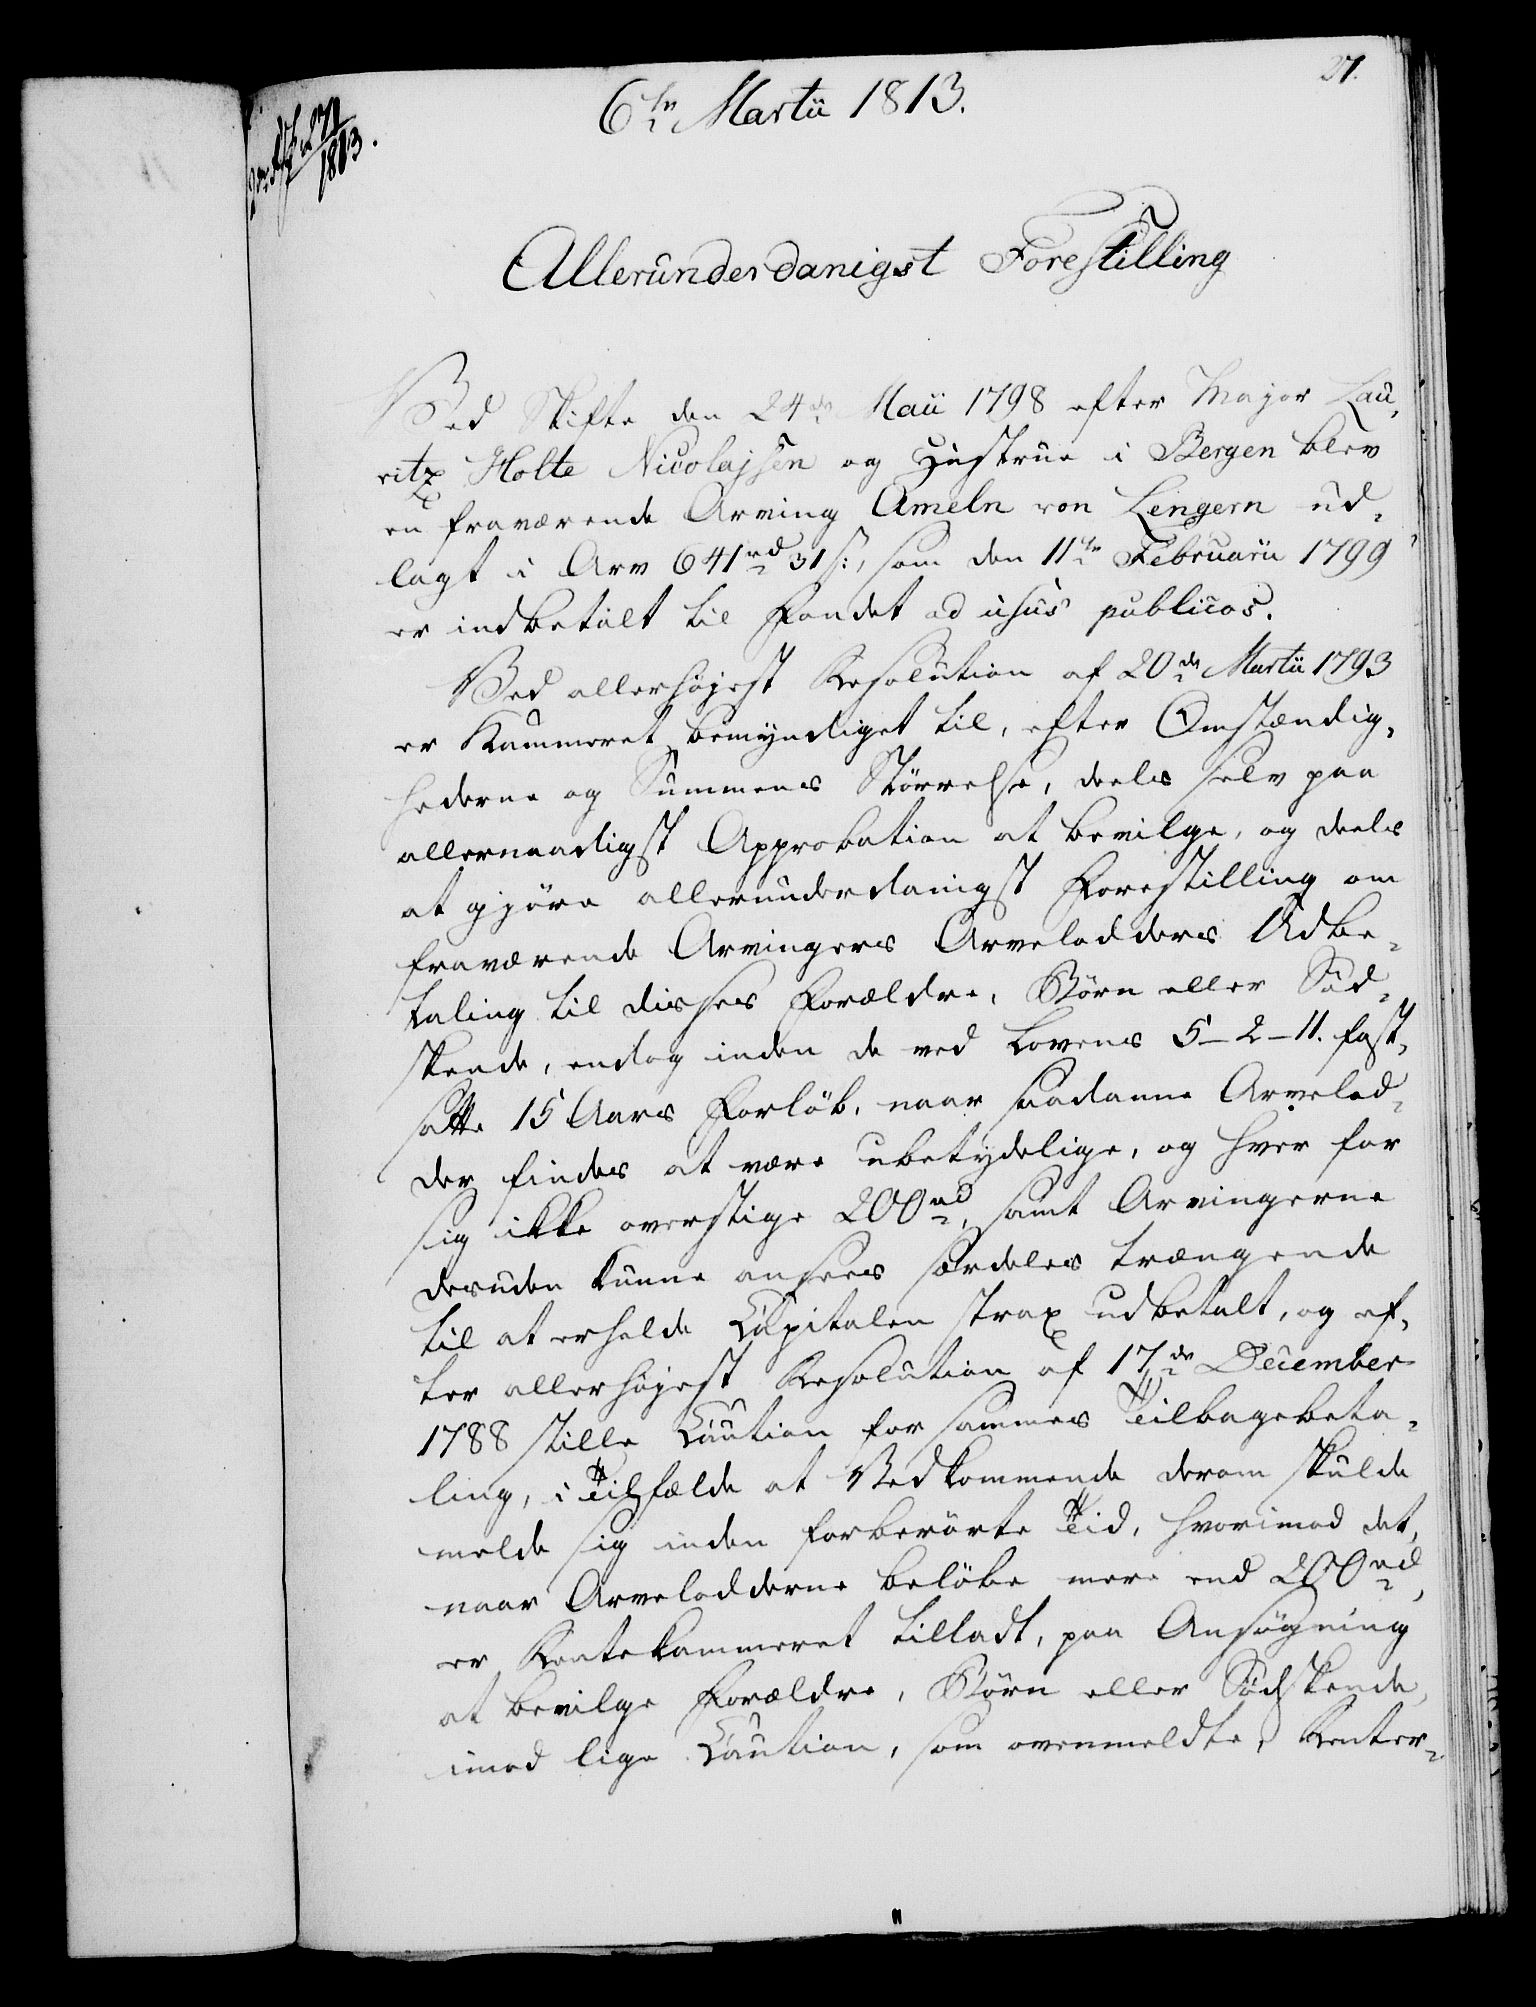 27.
6te Martii 1813.
271
1813.
Allerunderdanigst Forestilling
Ved Skifte den 24de Maii 1798 efter Major Lau¬
ritz Holte Nicolajsen og Hustrue i Bergen blev
en fraværende Arving Ameln von Lengern ud¬
lagt i Arv 641rd 31 s:, som den 11te Februarii 1799
er indbetalt til Fondet ad usus publicos.
Ved allerhöjest Resolution af 20de Martii 1793
er Kammeret bemyndiget til, efter Omstændig¬
hederne og Summens Störrelse, deels selv paa
allernaadigst Approbation at bevilge, og deels
at gjöre allerunderdanigst Forestilling om
fraværende Arvingers Arvelodders Udbe¬
taling til disses Forældre, Börn eller Söd¬
skende, endog inden de ved Lovens 5-2-11. fast¬
satte 15 Aars Forlöb, naar saadanne Arvelod¬
der findes at være ubetydelige, og hver for
sig ikke overstige 200rd, samt Arvingerne
desuden kunne ansees særdeles trængende
til at erholde Capitalen strax udbetalt, og ef¬
ter allerhöjest Resolution af 17de December
1788 stille Caution for sammes Tilbagebeta¬
ling, i Tilfælde at Vedkommende derom skulde
melde sig inden forberörte Tid, hvorimod det,
naar Arvelodderne belöbe mere end 200rd,
er Rentekammeret tilladt, paa Ansögning
at bevilge Forældre, Börn eller Södskende,
imod lige Caution, som ovenmeldte, Renter¬